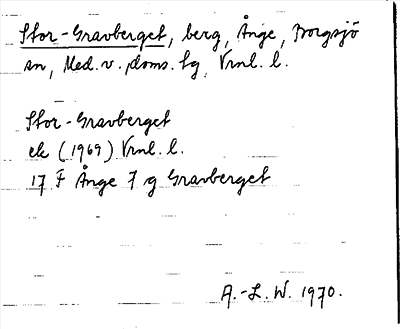 Stor-Gravberget, berg, Ånge, Borgsjö
sn, Med. v. doms. tg, Vrnl. l.
Stor-Gravberget
ek (1969) Vrnl. l.
17 F Ånge 7 g Gravberget
A.-L. W. 1970.